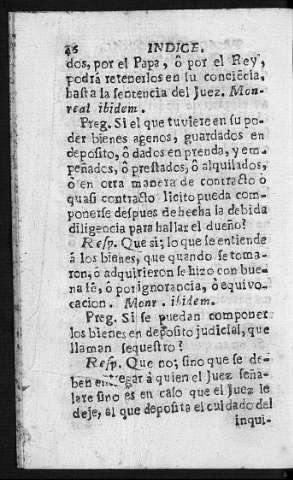 46 INDICE.
dos, por el Papa, ô por el Rey,
podrà retenerlos en su conciẽcia,
hasta la sentencia del Juez. Mon-
real ibidem.
Preg. Si el que tuviere en su po-
der bienes agenos, guardados en
deposito, ô dados en prenda, y em-
peñados, ô prestados, ô alquilados,
ô en otra manera de contracto ô
quasi contracto licito pueda com-
ponerse despues de hecha la debida
diligencia para hallar el dueño?
Resp. Que si; lo que se entiende
â los bienes, que quando se toma-
ron, ô adquirieron se hizo con bue-
na fê, ô por ignorancia, ô equivo-
cacion. Monr. ibidem.
Preg. Si se puedan componer
los bienes en deposito judicial, que
llaman sequestro?
Resp. Que no; sino que se de-
ben entregar á quien el Juez seña-
lare sino es en caso que el Juez le
deje, al que deposita el cuidado del
inqui-